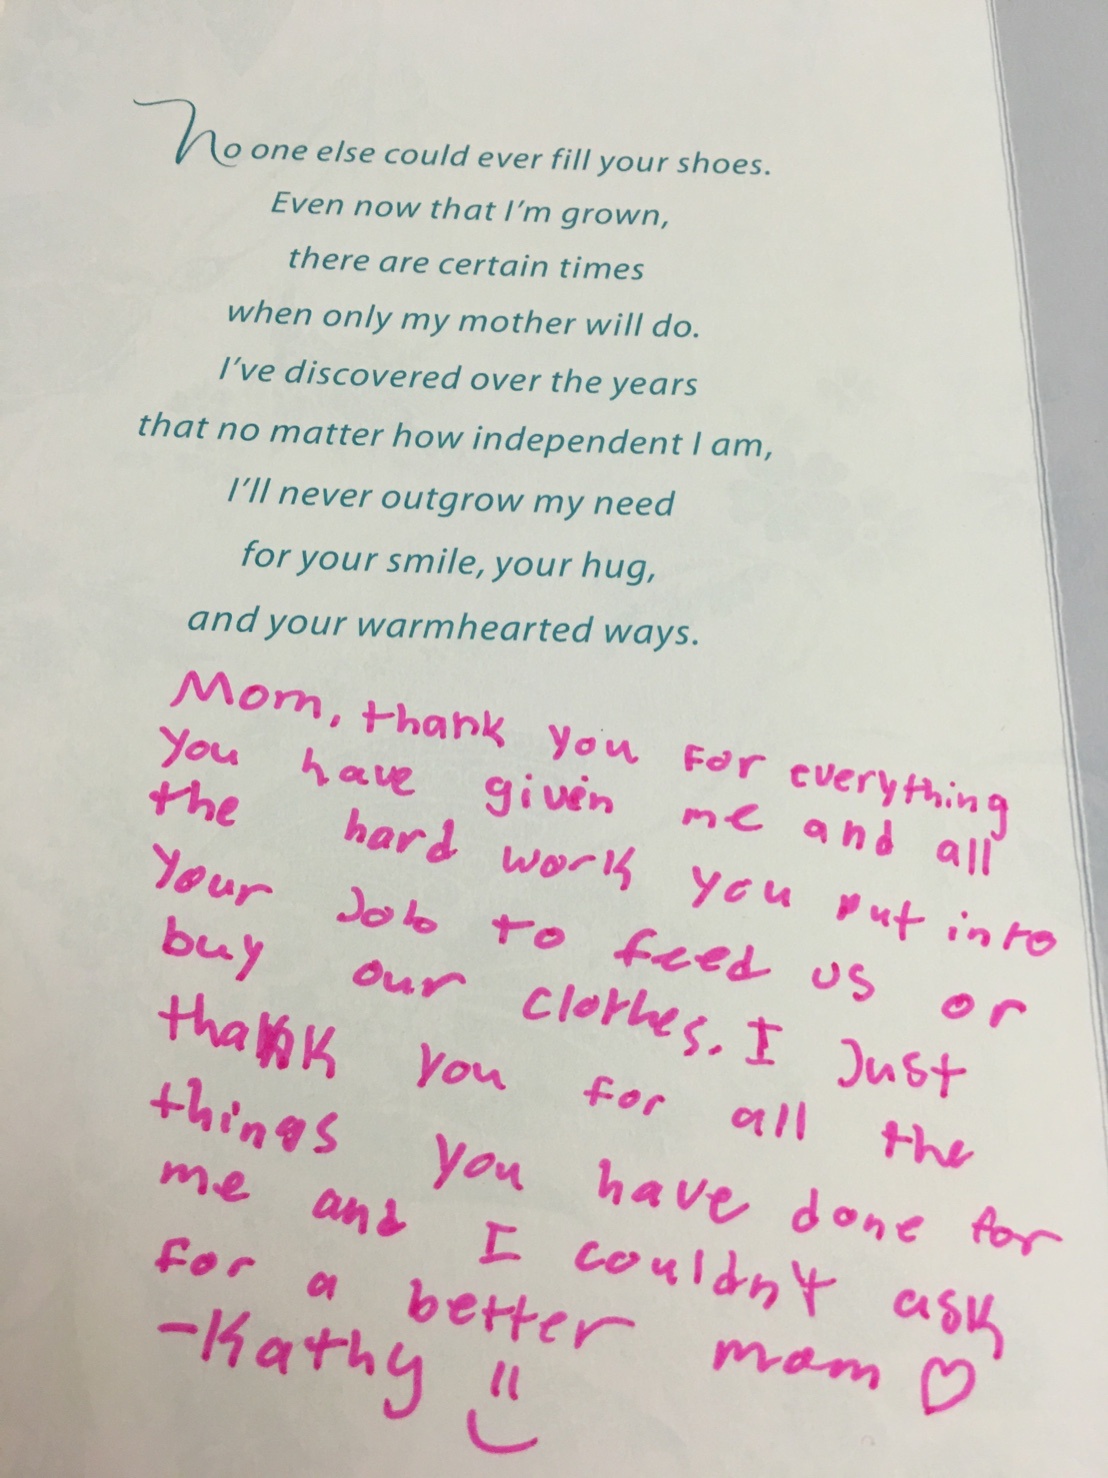 No one else could ever fill your shoes.
Even now that I'm grown,
there are certain times
when only my mother will do.
I've discovered over the years
that no matter how independent I am,
I'll never outgrow my need
for your smile, your hug,
and your warmhearted ways.
Mom, thank you for everything
you have given me and all
the hard work you put into
your Job to feed us or
buy our clothes. I Just
thank you for all the
things you have done for
me and I couldn't ask
for a better mom ♡
-Kathy